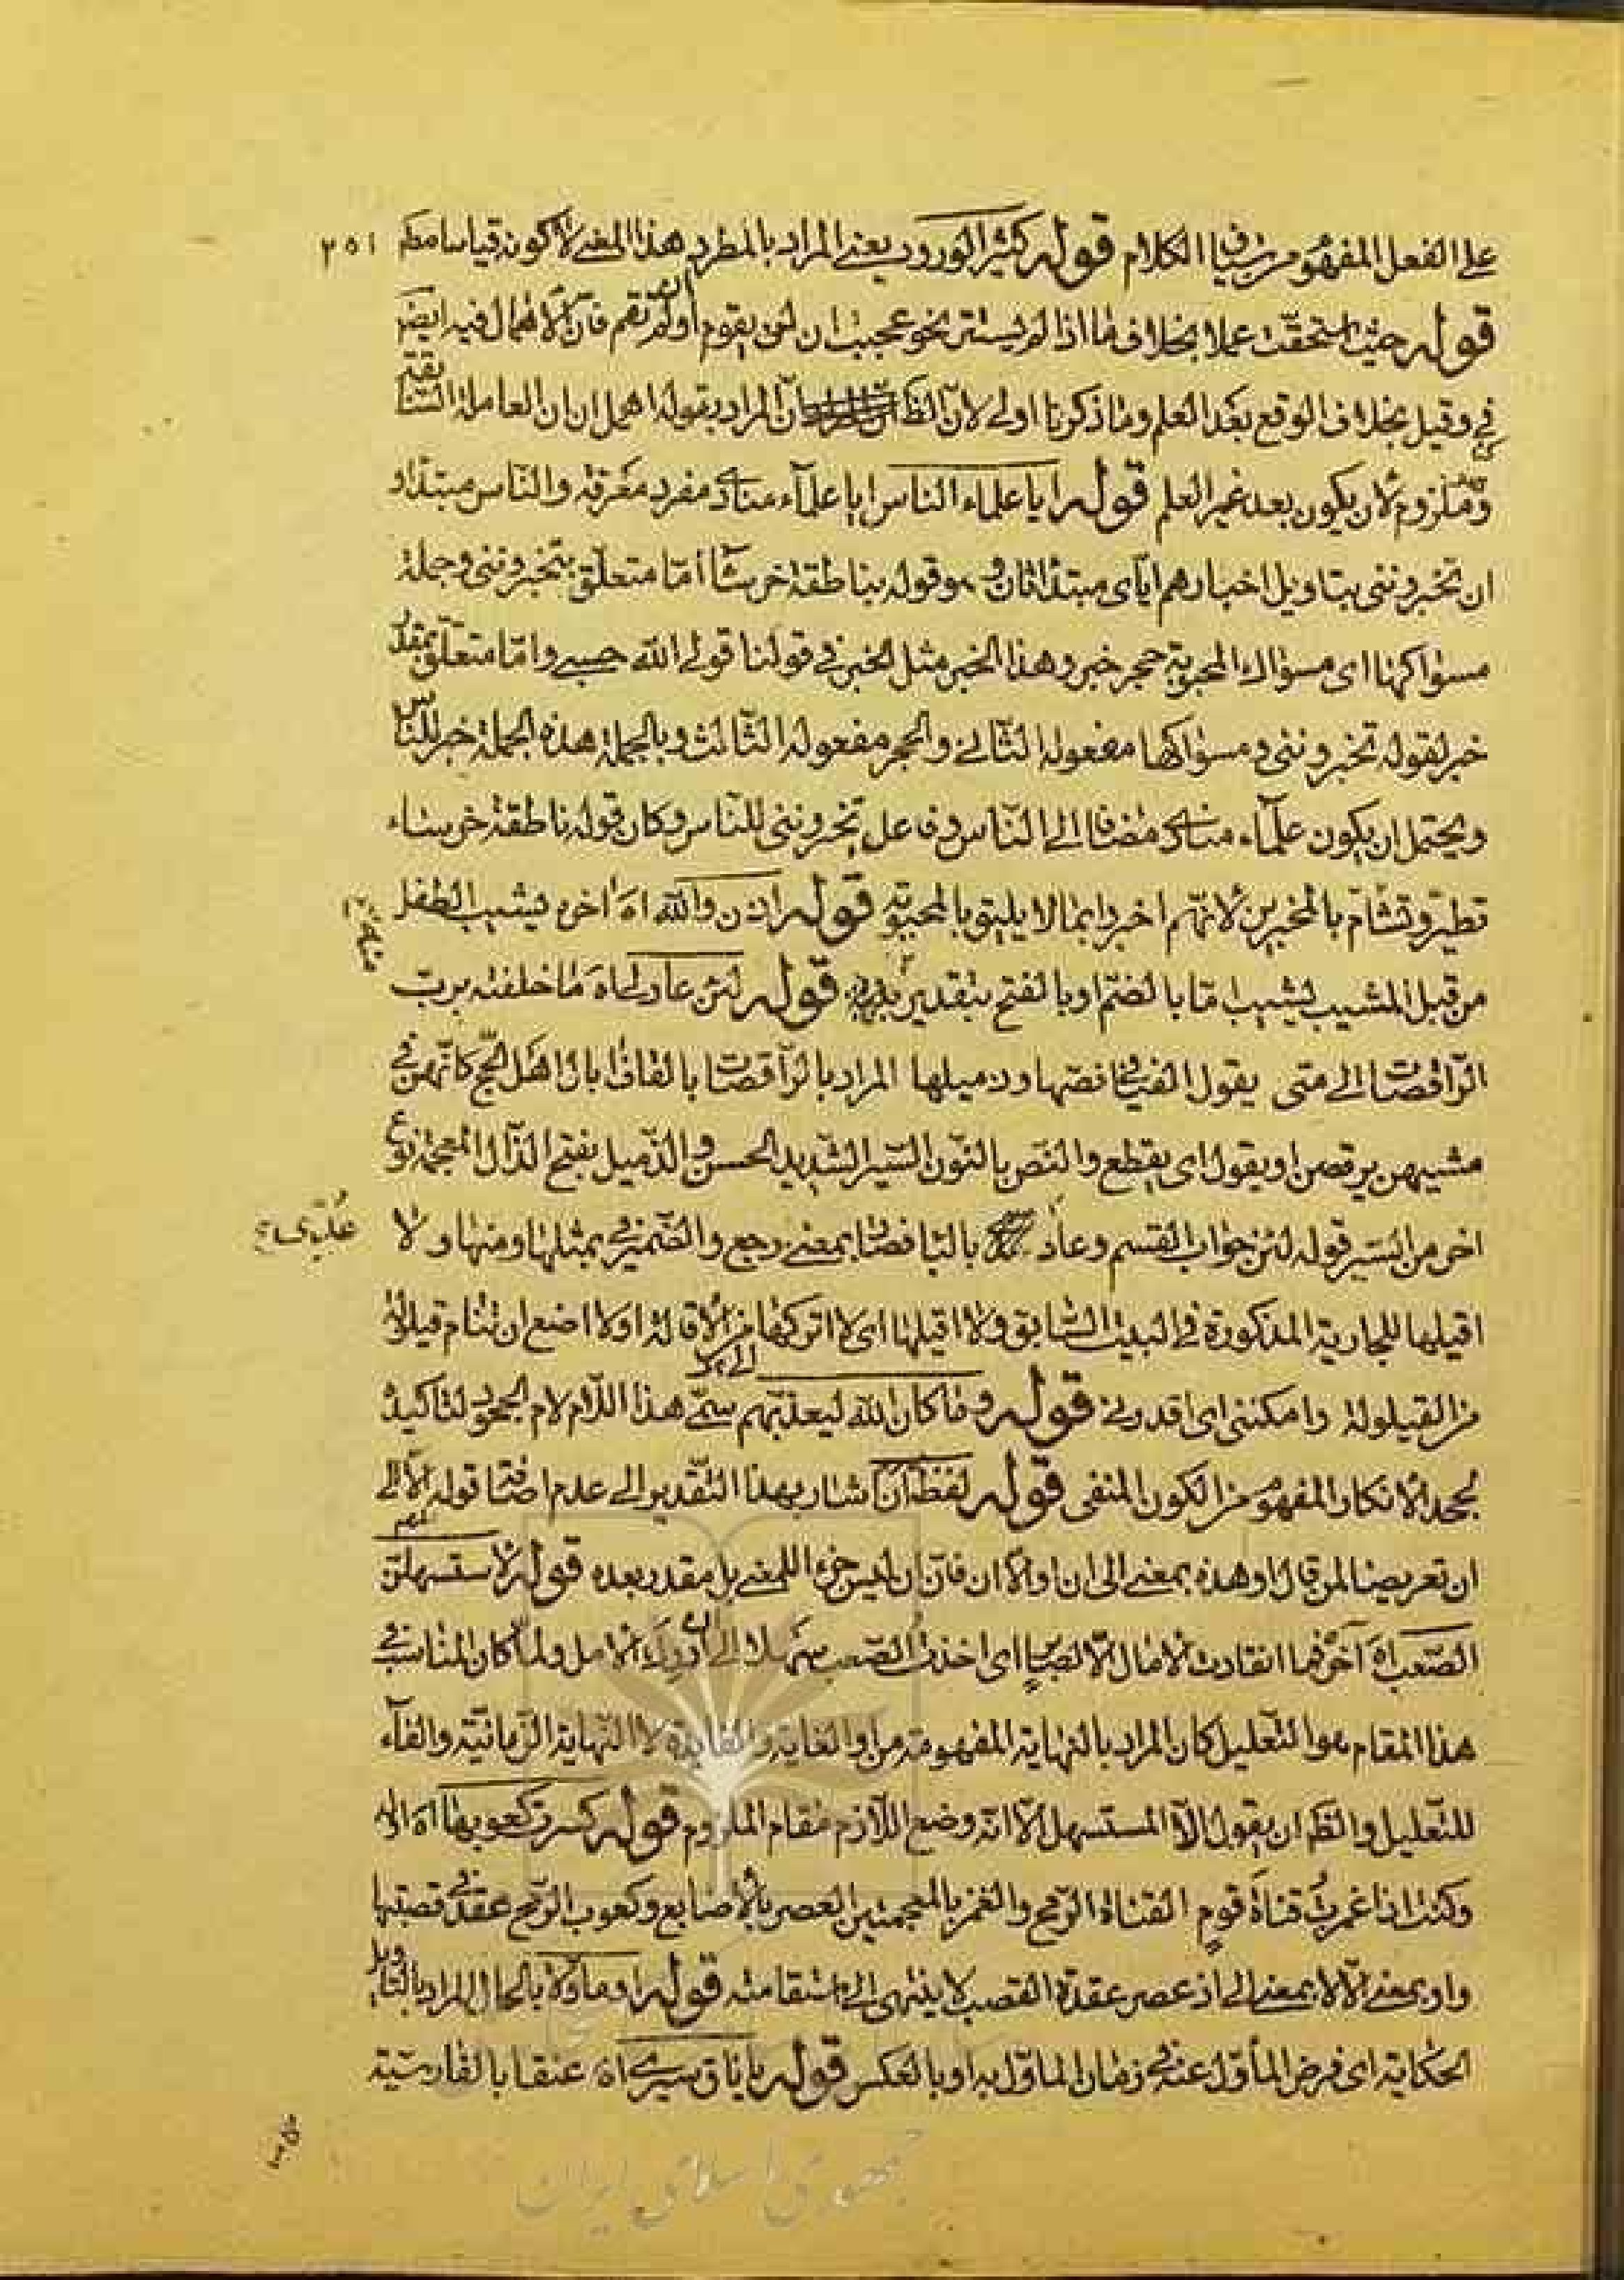 على الفعل المفهوم من سياق الكلام قوله كثير الورود يعنى المراد بالمطرد هذا المعنى لا كونه قياسا مطر ٢٥١
قوله حيث استحقت عملا بخلاف ما اذا لم يستتر نحو عجبت ان لن يقوم او لم تقم فان الاهمال فيه ايض
فى وقيل بخلاف الوقع بعد العلم وما ذكرنا اولى لان الظ ان المراد بقوله اهمل ان ان العاملة
وملزوم لان يكون بعد غير العلم قوله ايا علماء الناس ايا علماء منادى مفرد معرفة والناس مبتدأ و
ان تخبروننى بتاويل اخباركم اياى مبتدأ ثان و هو وقوله بناطقة خرساء اما متعلق بتخبروننى وجملة
مسواكها اى مسواك المحبوبة حجر خبر وهذا الخبر مثل الخبر فى قولنا قولى الله حسبى واما متعلق بمقدر
خبر لقوله تخبروننى ومسواكها مفعوله الثانى والحجر مفعوله الثالث وبالجملة هذه الجملة خبر للناس
ويحتمل ان يكون علماء منادى مضافا الى الناس وفاعل تخبروننى للناس وكان قوله ناطقة خرساء
تطير وتشأم بالمخبرين لانهم اخبروا بما لا يليق بالمحبوبة قوله اذن والله اه اخره تشيب الطفل
من قبل المشيب يشيب اما بالضم او بالفتح بتقدير قوله لئن عاد لى اه ما خلفته برب
الراقصات الى متى يقول الفيافى نصها وذميلها المراد بالراقصات بالقاف ابال اهل الحج كانهن فى
مشيهن يرقصن او يقول اى يقطع والنص بالنون السير الشديد الحسن والذميل بفتح الذال المعجمة نوع
اخر من السير قوله لئن جواب القسم وعاد بمعنى رجع والضمير فى بمثلها ومنها ولا
اقيلها للجارية المذكورة فى البيت السابق ولا اقيلها اى لا اتركها من الاقالة او لا اضع ان تنام قيلولة
من القيلولة وامكننى اى اقدرنى قوله وما كان الله ليعذبهم سمى هذا اللام لام الجحود لتاكيد
لجحد الانكار المفهوم من الكون المنفى قوله لفظ ان اشار بهذا التقدير الى عدم قوله الا الى
ان تعريضا لمن قال او هذه بمعنى الى ان او الا ان فان ان ليس جزء المعنى بل مقدر بعده قوله لاستسهلن
الصعب اه اخره فما انقادت الامال الا لصابر اى اخذت الصعب سهلا الى ان ادرك الامل ولما كان المناسب فى
هذا المقام هو التعليل كان المراد بالنهاية المفهومة من او الغاية والفايدة لا النهاية الزمانية والفاء
للتعليل والظ ان يقول الا المستسهل الا انه وضع اللازم مقام الملزوم قوله كسرت كعوبها اه
وكنت اذا غمزت قناة قوم القناة الرمح والغمز بالمعجمتين العصر بالاصابع وكعوب الرمح عقد فى قصبتها
واو بمعنى الا لا بمعنى الى اذ عصر عقدة القصب لا ينتهى الى استقامته قوله او مأولا بالحال المراد بالتاويل
الحكاية اى فرض المأول عنه فى زمان الماول به او بالعكس قوله يا ناق سيرى اه عنقا بالفارسية
جمهوری اسلامی ایران